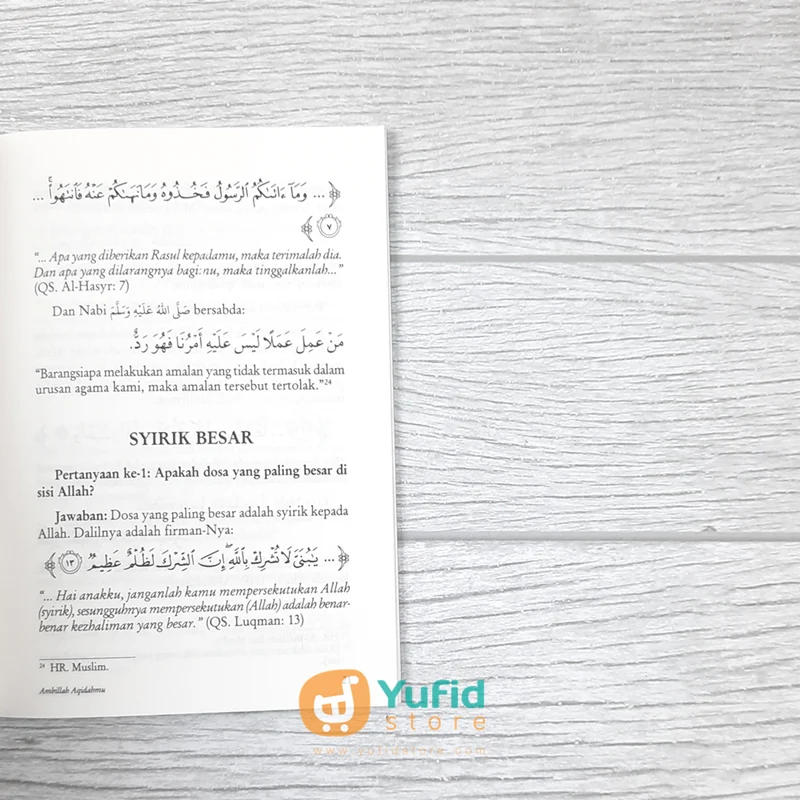 ﴿... وَمَآ ءَاتَىٰكُمُ ٱلرَّسُولُ فَخُذُوهُ وَمَا نَهَىٰكُمْ عَنْهُ فَٱنتَهُوا۟ۚ ...
٧ ﴾
“... Apa yang diberikan Rasul kepadamu, maka terimalah dia.
Dan apa yang dilarangnya bagimu, maka tinggalkanlah...”
(QS. Al-Hasyr: 7)
Dan Nabi صَلَّى اللهُ عَلَيْهِ وَسَلَّمَ bersabda:
مَنْ عَمِلَ عَمَلًا لَيْسَ عَلَيْهِ أَمْرُنَا فَهُوَ رَدٌّ.
“Barangsiapa melakukan amalan yang tidak termasuk dalam
urusan agama kami, maka amalan tersebut tertolak.”24
SYIRIK BESAR
Pertanyaan ke-1: Apakah dosa yang paling besar di
sisi Allah?
Jawaban: Dosa yang paling besar adalah syirik kepada
Allah. Dalilnya adalah firman-Nya:
﴿... يَٰبُنَىَّ لَا تُشْرِكْ بِٱللَّهِ ۖ إِنَّ ٱلشِّرْكَ لَظُلْمٌ عَظِيمٌ ١٣ ﴾
“... Hai anakku, janganlah kamu mempersekutukan Allah
(syirik), sesungguhnya mempersekutukan (Allah) adalah benar-
benar kezhaliman yang besar.” (QS. Luqman: 13)
24 HR. Muslim.
Ambillah Aqidahmu
Yufid
store
www.yufidstore.com